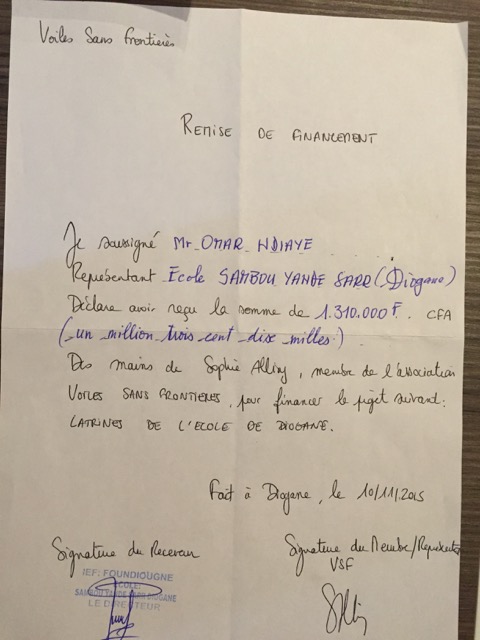 Voiles Sans Frontières
REMISE DE FINANCEMENT
Je soussigné Mr OMAR NDIAYE
Représentant Ecole SAMBOU YANDE SARR (Diogane)
Déclare avoir reçu la somme de 1.310.000 F. CFA
(un million trois cent dix milles.)
Des mains de Sophie Alliny, membre de l'association
VOILES SANS FRONTIERES, pour financer le projet suivant:
LATRINES DE L'ECOLE DE DIOGANE.
Fait à Diogane, le 10/11/2015
Signature du Receveur
Signature du Membre/Représentant
VSF
IEF: FOUNDIOUGNE
ECOLE:
SAMBOU YANDE SARR DIOGANE
LE DIRECTEUR